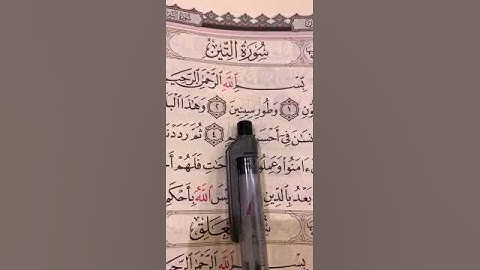 سُورَةُ التِّينِ
بِسْمِ اللَّهِ الرَّحْمَٰنِ الرَّحِيمِ
ونِ ١ وَطُورِ سِينِينَ ٢ وَهَٰذَا الْبَلَ
نسَٰنَ فِي أَحْسَنِ ٤ ثُمَّ رَدَدْنَ
ءَامَنُوا وَعَمِلُوا حَٰتِ فَلَهُمْ أَ
بَعْدُ بِالدِّينِ يْسَ اللَّهُ بِأَحْكَمِ
الْعَلَقِ
بِسْمِ اللَّهِ الرَّحْمَٰنِ الرَّحِي